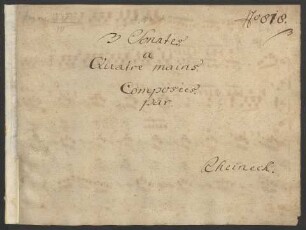 No 878.
3 Sonates
a
Quatre mains.
Composées
par
Cheineck.